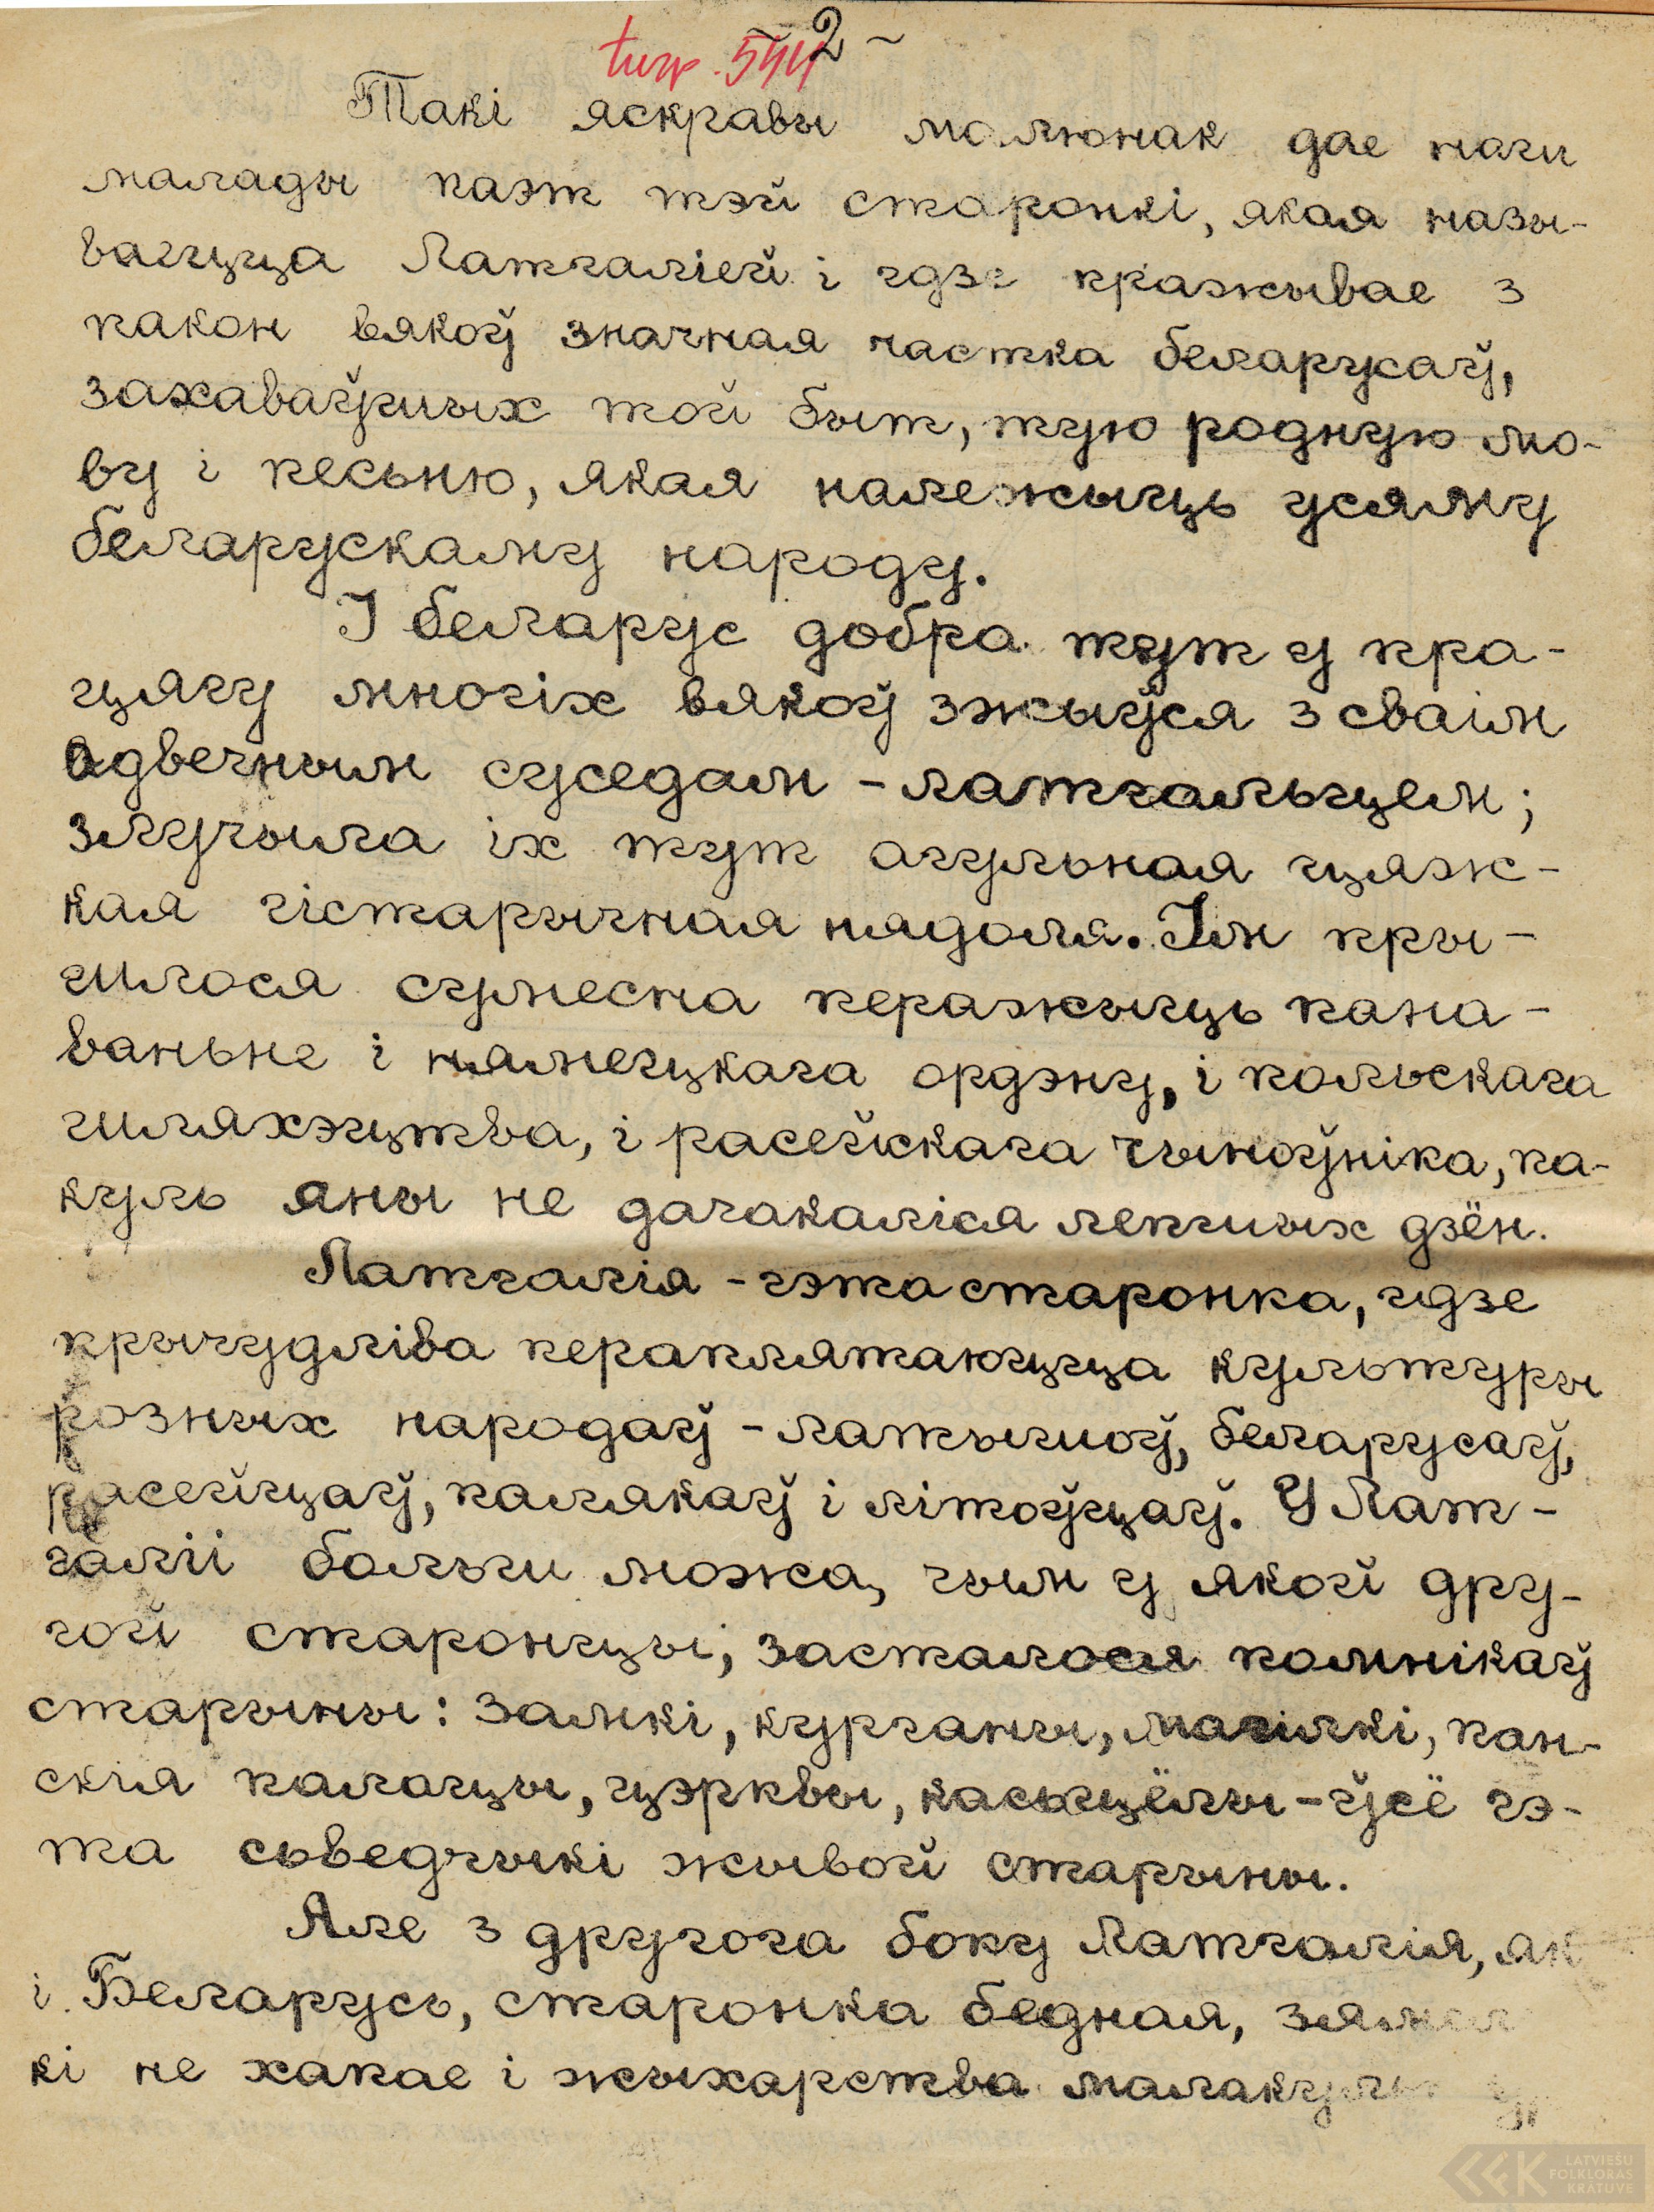 - 2 -
turp. 544
Такі яскравы малюнак дае наш
малады паэт тэй старонкі, якая назы-
ваецца Латгаліей і гдзе пражывае з
пакон вякоў значная частка беларусаў,
захаваўшых той быт, тую родную мо-
ву і песьню, якая належыць усяму
беларускаму народу.
І беларус добра тут у пра-
цягу многіх вякоў зжыўся з сваім
адвечным суседам - латгальцем;
злучыла іх тут агульная цяж-
кая гістарычная нядоля. Ім пры-
шлося сумесна перажыць пана-
ваньне і нямецкага ордэну, і польскага
шляхэцтва, і расейскага чыноўніка, па-
куль яны не дачакаліся лепшых дзён.
Латгалія - гэта старонка, гдзе
прычудліва пераплятаюцца культуры
розных народаў - латышоў, беларусаў,
расейцаў, палякаў і літоўцаў. У Лат-
галіі больш можа, чым у якой дру-
гой старонцы, засталося помнікаў
старыны: замкі, курганы, магілкі, пан-
скія палацы, цэрквы, касьцёлы - ўсё гэ-
та сьведчыкі жывой старыны.
Але з другога боку Латгалія, як
і Беларусь, старонка бедная, зямел
кі не хапае і жыхарства малакуль
LATVIEŠU
FOLKLORAS
KRĀTUVE